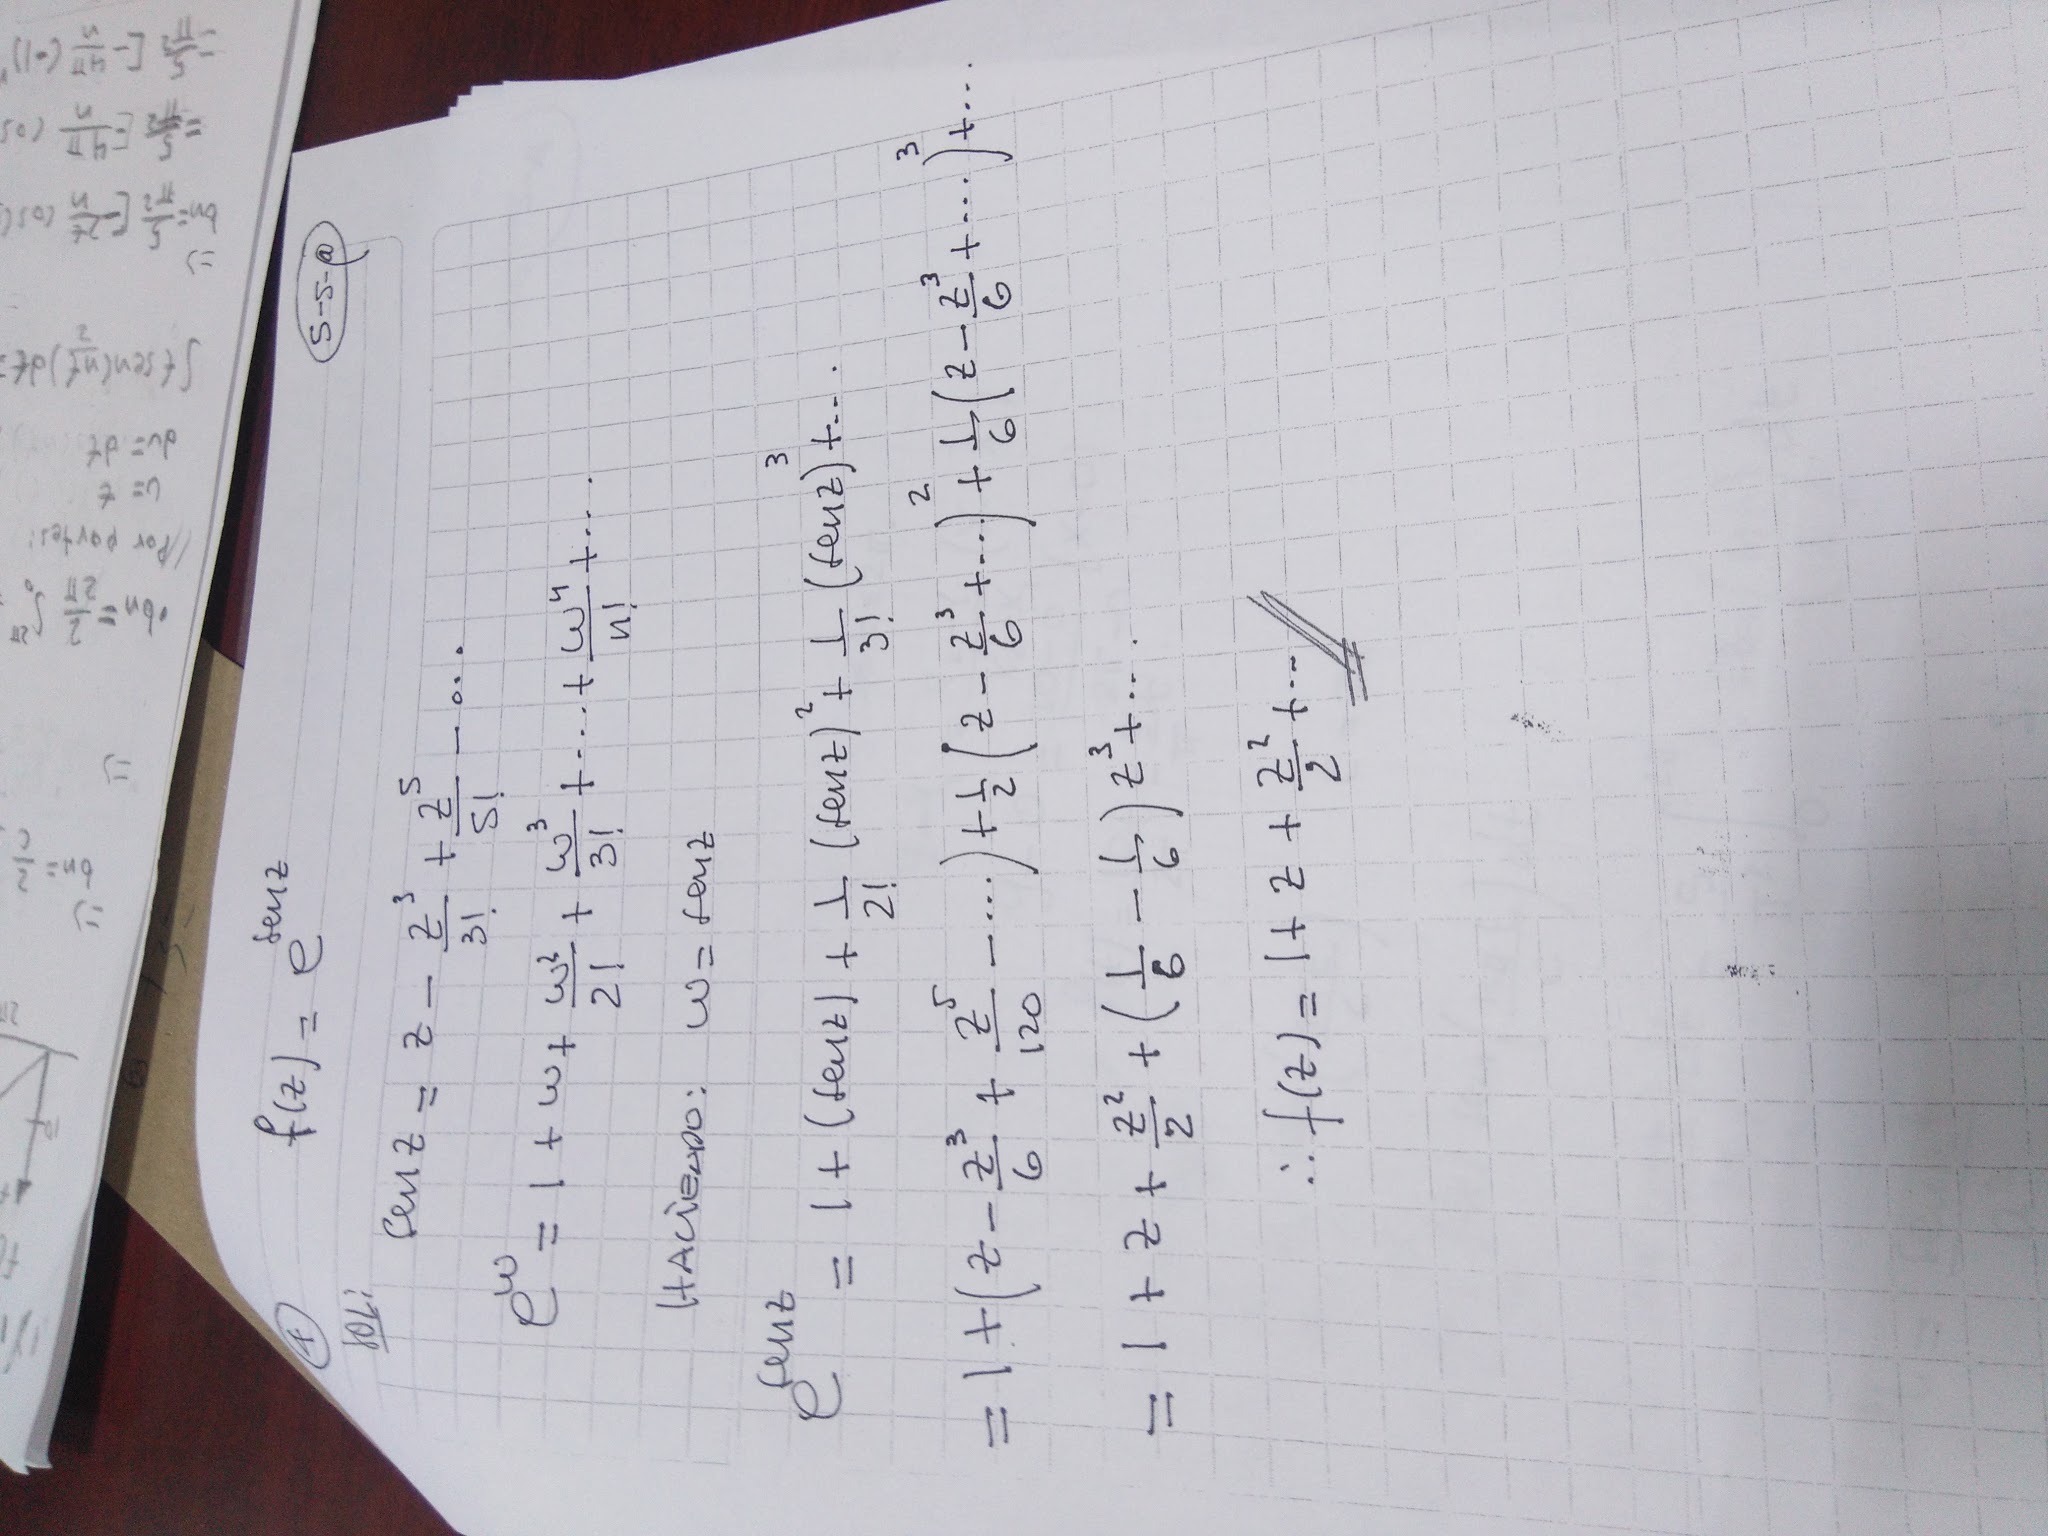 bn = 2/
=)
=)
• bn = 2/2π ∫₀^2π
//Por partes:
u = t
du = dt
=)
4
f(z) = e^senz
5-5-@
SOL:
senz = z - z³/3! + z⁵/5! - ...
e^w = 1 + w + w²/2! + w³/3! + ... + w^n/n! + ...
HACIENDO: w = senz
e^senz = 1 + (senz) + 1/2! (senz)² + 1/3! (senz)³ + ...
= 1 + (z - z³/6 + z⁵/120 - ...) + 1/2 (z - z³/6 + ...)² + 1/6 (z - z³/6 + ...)³ + ...
= 1 + z + z²/2 + (1/6 - 1/6) z³ + ...
∴ f(z) = 1 + z + z²/2 + ...